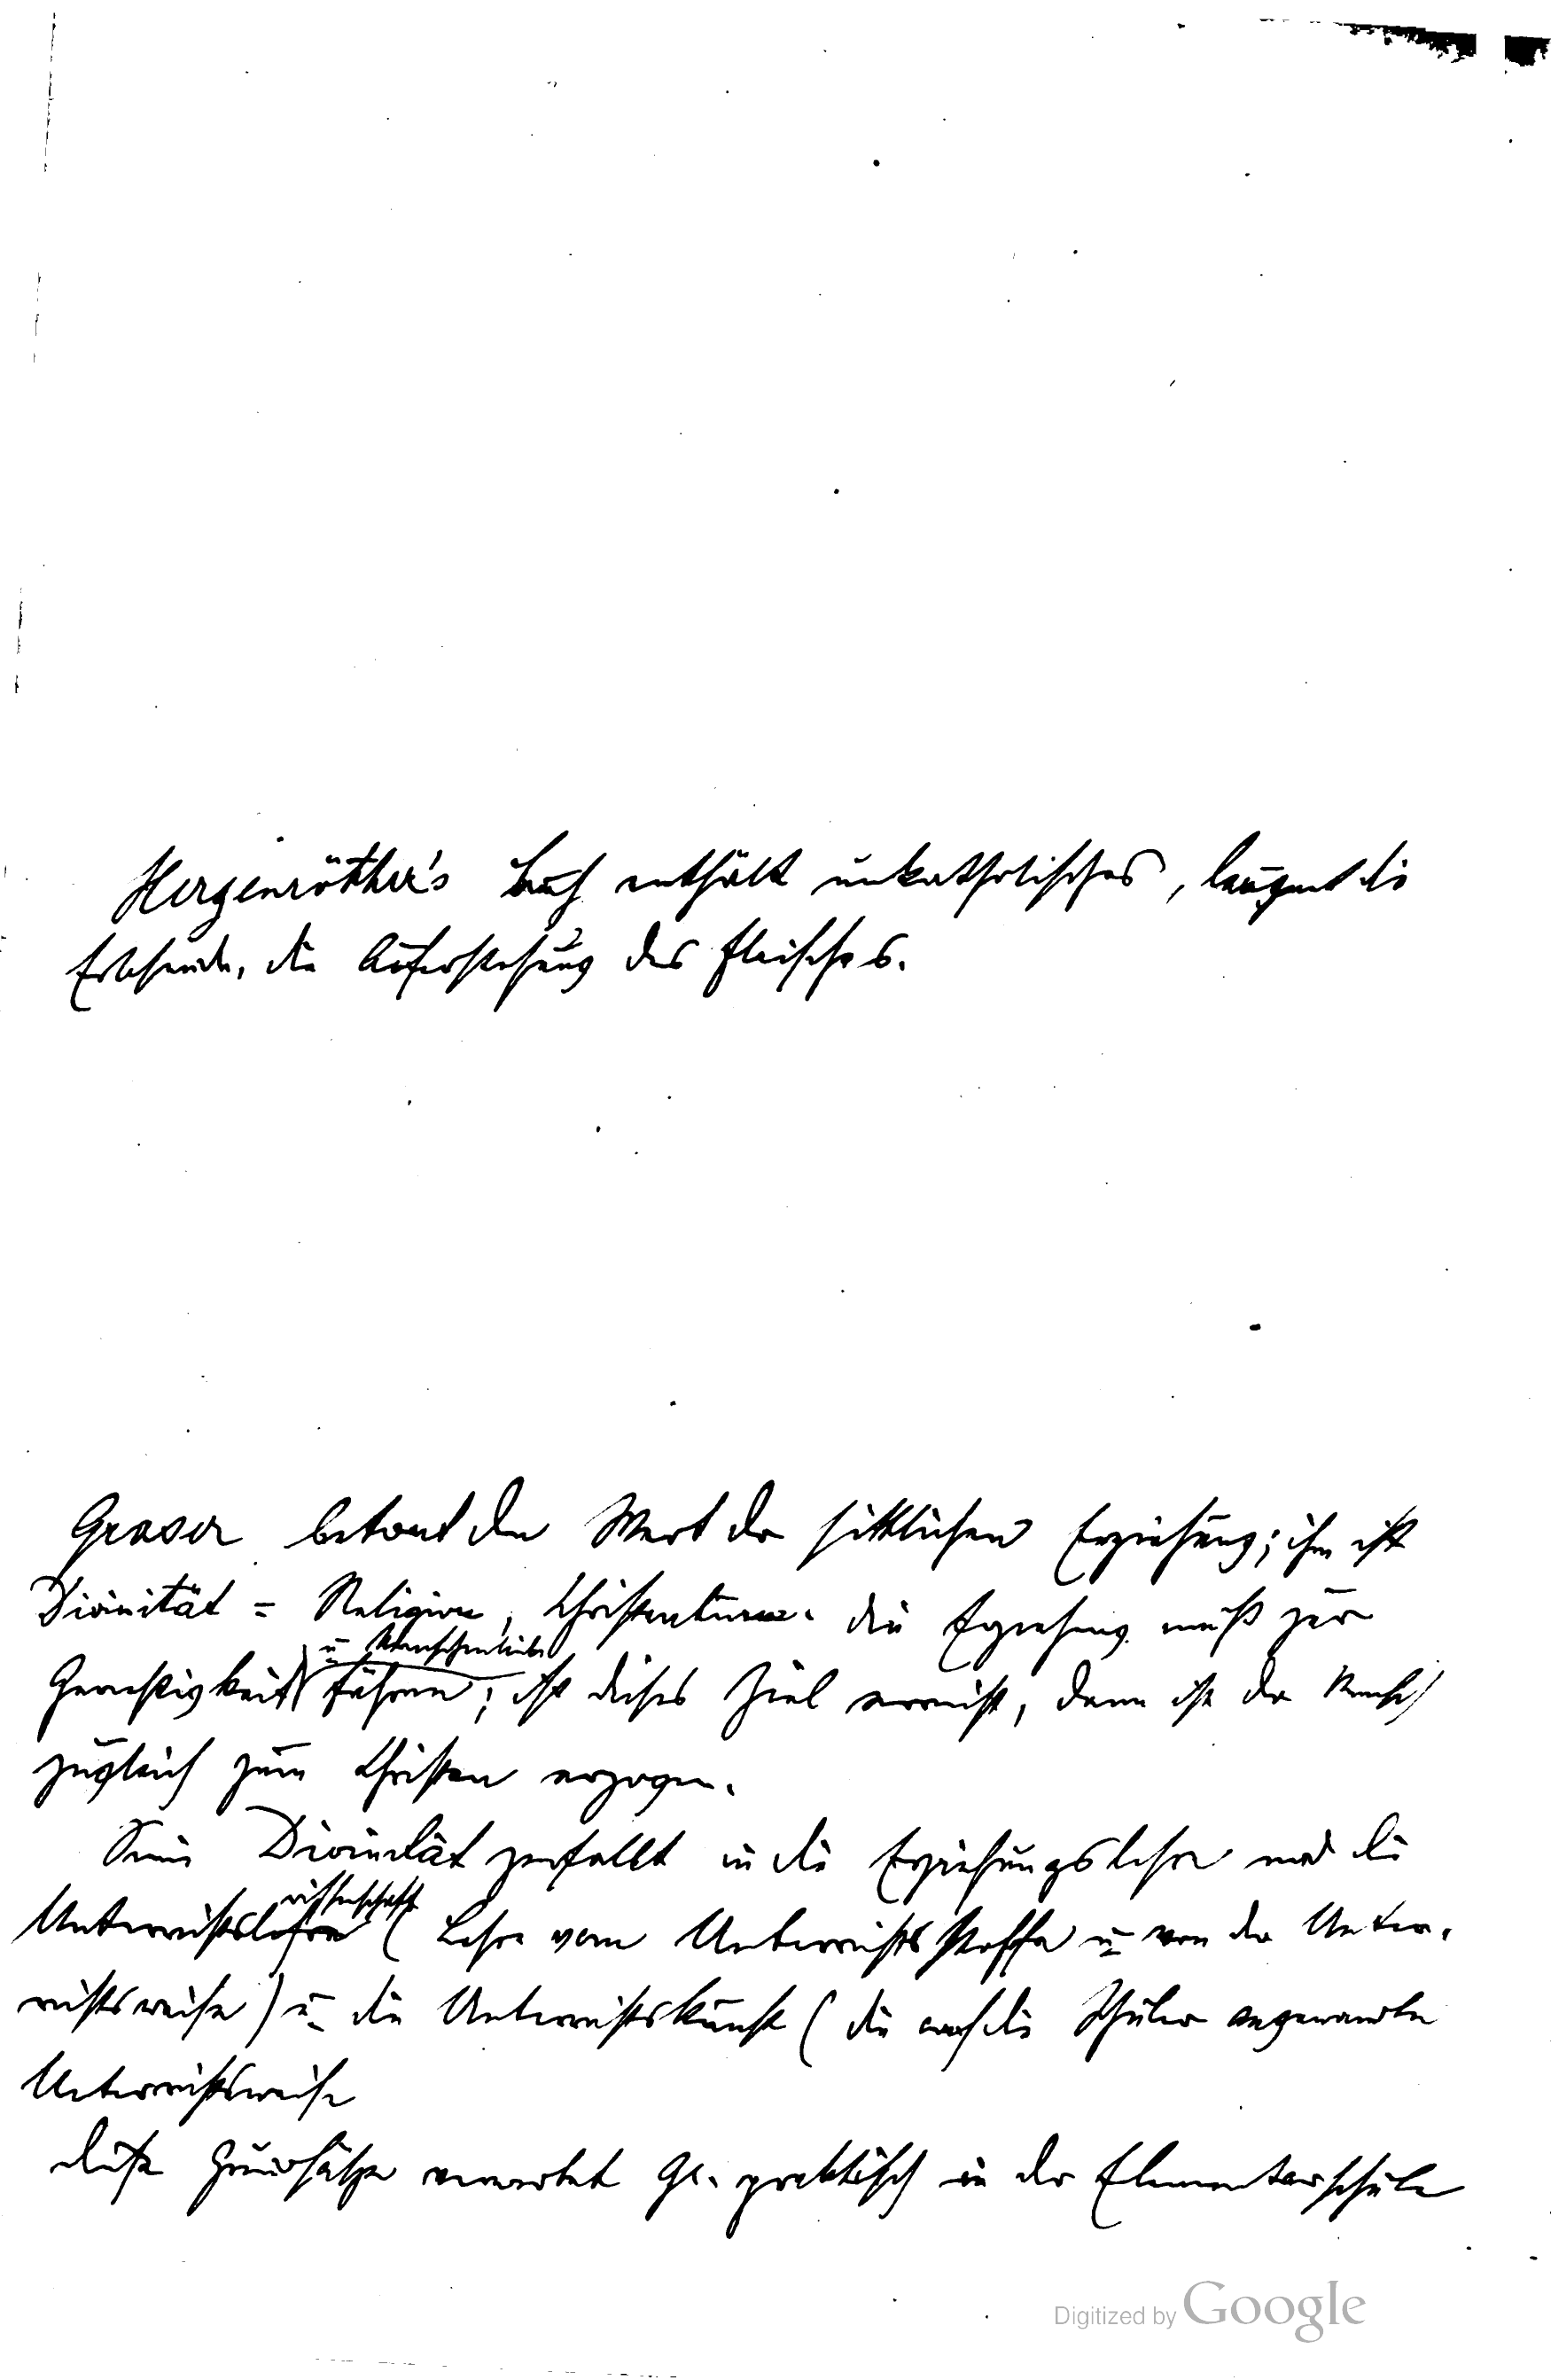 Hergenröther's Buch enthält unkatholisches, leugnet die
Erbsünde, die Auferstehung des Fleisches.
Graser betont den Wert der sittlichen Erziehung; ihm ist
Divinität = Religion, Christentum. die Erziehung muß zur
u Menschenliebe
Gerechtigkeit führen; ist dieses Ziel erreicht, dann ist der Mensch
zugleich zum Christen erzogen.
Seine Divinität zerfällt in die Erziehungslehre und die
wissenschaft
Unterrichtslehre (Lehre vom Unterrichtsstoffe u von der Unter-
richtsweise) u die Unterrichtskunst (die auf die Schüler angewandte
Unterrichtsweise
diese Grundsätze verwertet Gr. praktisch in der Elementarschule
Digitized by Google